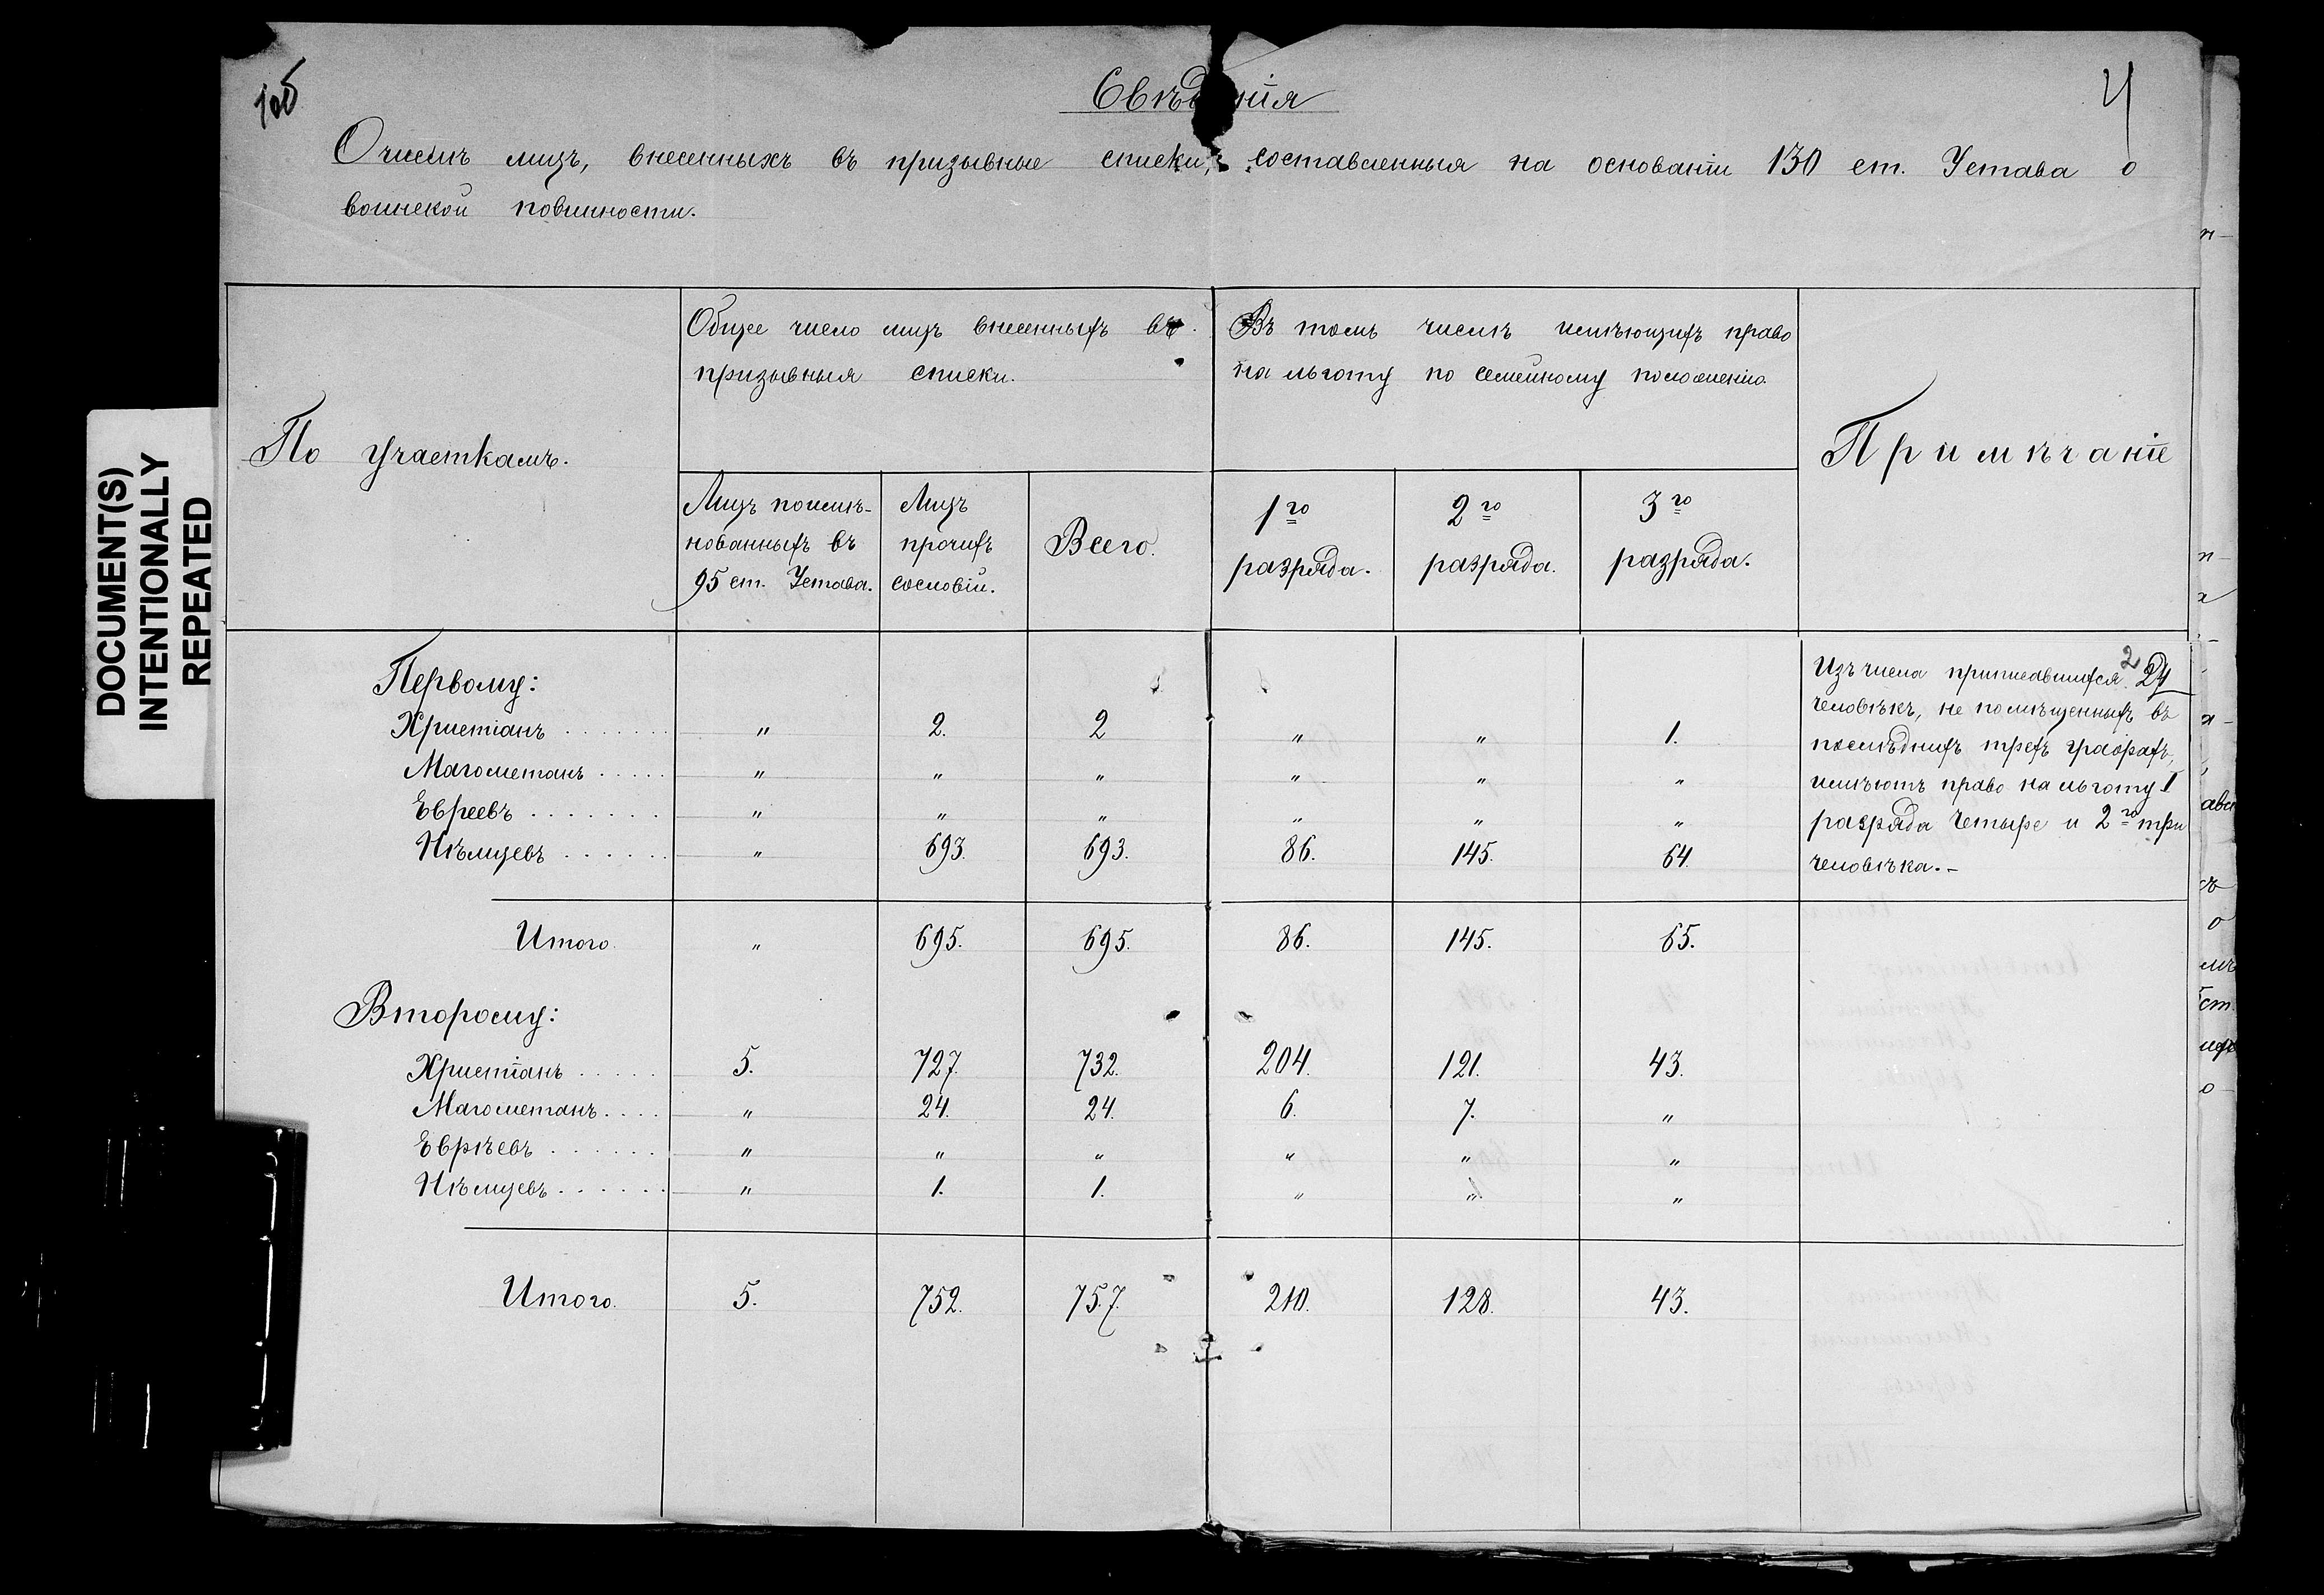 DOCUMENT(S)
INTENTIONALLY
REPEATED
4
Свѣдѣнія
О числѣ лицъ, внесенныхъ въ призывные списки, составленныя на основаніи 130 ст. Устава о
воинской повинности.
По участкамъ.
Общее число лицъ внесенныхъ въ
призывныя списки.
Въ томъ числѣ имѣющихъ право
на льготу по семейному положенію.
Примѣчаніе
Лицъ поимѣ-
нованныхъ въ
95 ст. Устава.
Лицъ
прочихъ
сословій.
Всего.
1го разряда.
2го разряда.
3го разряда.
Первому:
Христіанъ . . . . . . . " 2. 2 " " 1.
Магометанъ . . . . . " " " " " "
Евреевъ . . . . . . . " " " " " "
Нѣмцевъ . . . . . . " 693. 693. 86. 145. 64.
Итого " 695. 695. 86. 145. 65.
Изъ числа приписавшихся 2 24
человѣкъ, не помѣщенныхъ въ
послѣднихъ трехъ графахъ,
имѣютъ право на льготу I
разряда четыре и 2го три
человѣка.-
Второму:
Христіанъ . . . . . 5. 727. 732. 204. 121. 43.
Магометанъ . . . . " 24. 24. 6. 7. "
Еврѣевъ . . . . . . " " " " " "
Нѣмцевъ . . . . . . " 1. 1. " " "
Итого 5. 752. 757. 210. 128. 43.